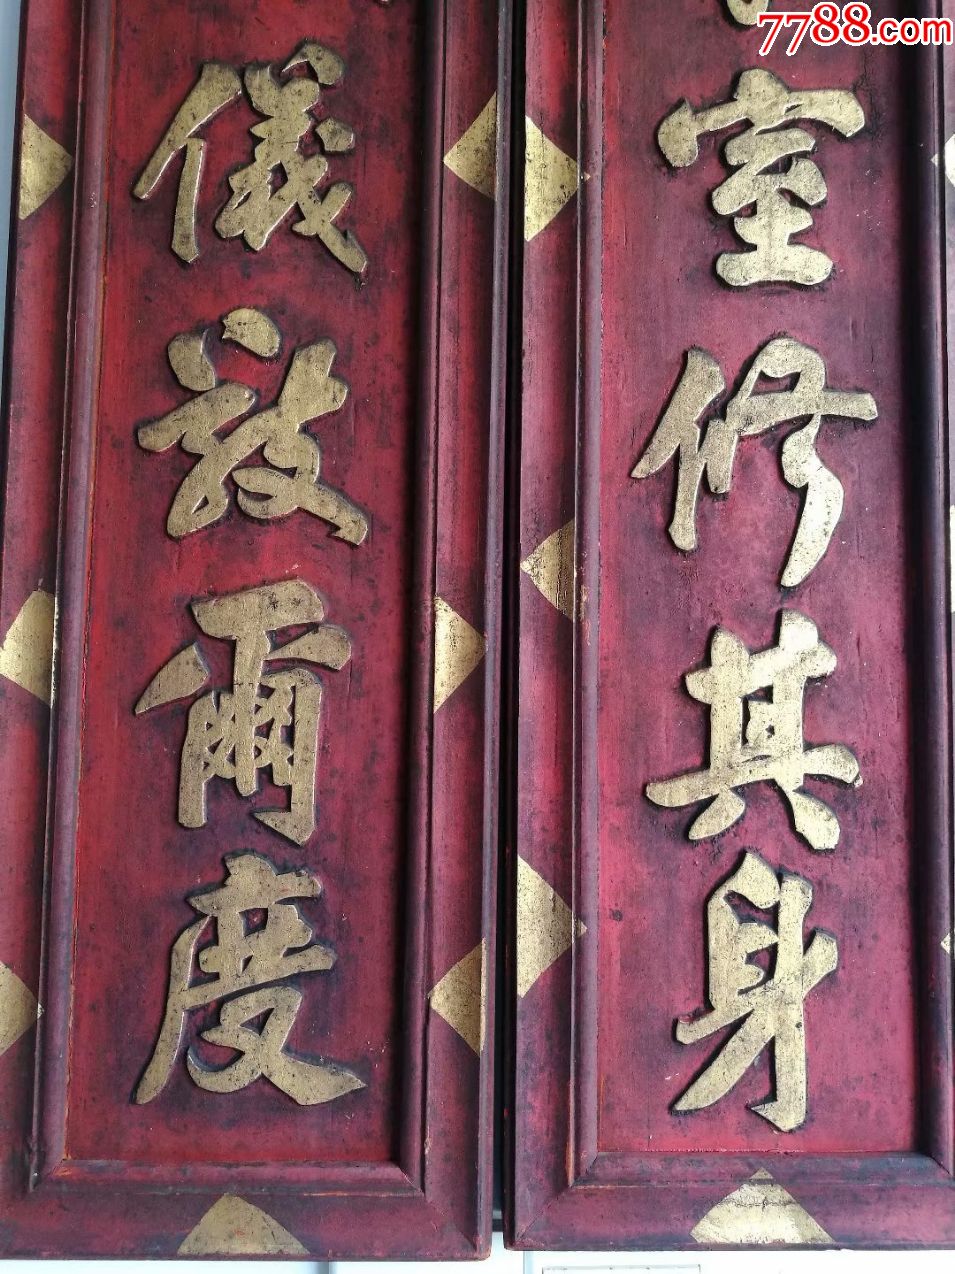 7788.com
室修其身
儀爾度